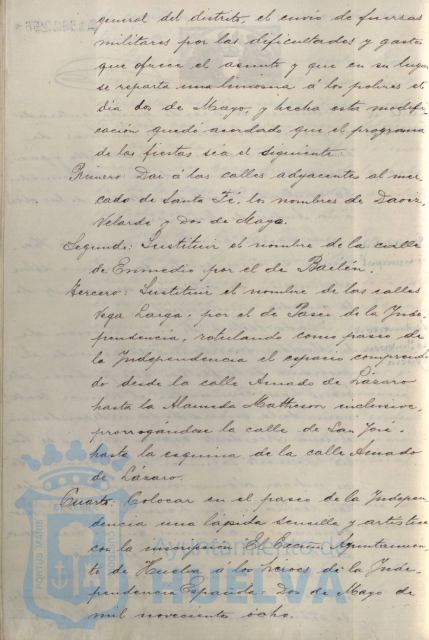 general del distrito, el envío de fuerzas
militares por las dificultades y gastos
que ofrece el asunto y que en su lugar
se reparta una limosna á los pobres el
día dos de Mayo, y hecha esta modifi-
cación quedó acordado que el programa
de las fiestas sea el siguiente.
Primero: Dar á las calles adyacentes al mer-
cado de Santa Fé, los nombres de Daoiz,
Velarde y Dos de Mayo.
Segundo: Sustituir el nombre de la calle
de Enmedio por el de Bailén.
Tercero: Sustituir el nombre de las calles
Vega Larga, por el de Paseo de la Inde-
pendencia, rotulando como paseo de
la Independencia el espacio comprendi-
do desde la calle Amado de Lázaro
hasta la Alameda Matheson inclusive,
prorrogándose la calle de San José,
hasta la esquina de la calle Amado
de Lázaro.
Cuarto: Colocar en el paseo de la Indepen-
dencia una lápida sencilla y artística
con la inscripción: El Excmo Ayuntamien-
to de Huelva a los héroes de la Inde-
pendencia Española = Dos de Mayo de
mil novecientos ocho.
Ayuntamiento de
HUELVA